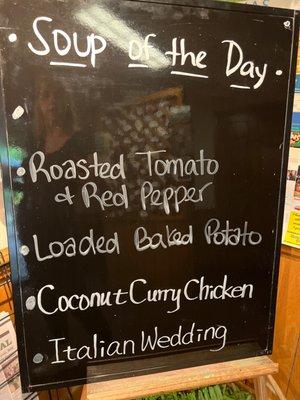 • Soup of the Day •
• Roasted Tomato
• & Red Pepper
• Loaded Baked Potato
• Coconut Curry Chicken
• Italian Wedding